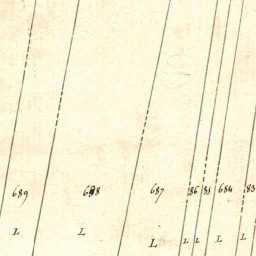 689 688 687 86 85 684 83
L L L L L L L